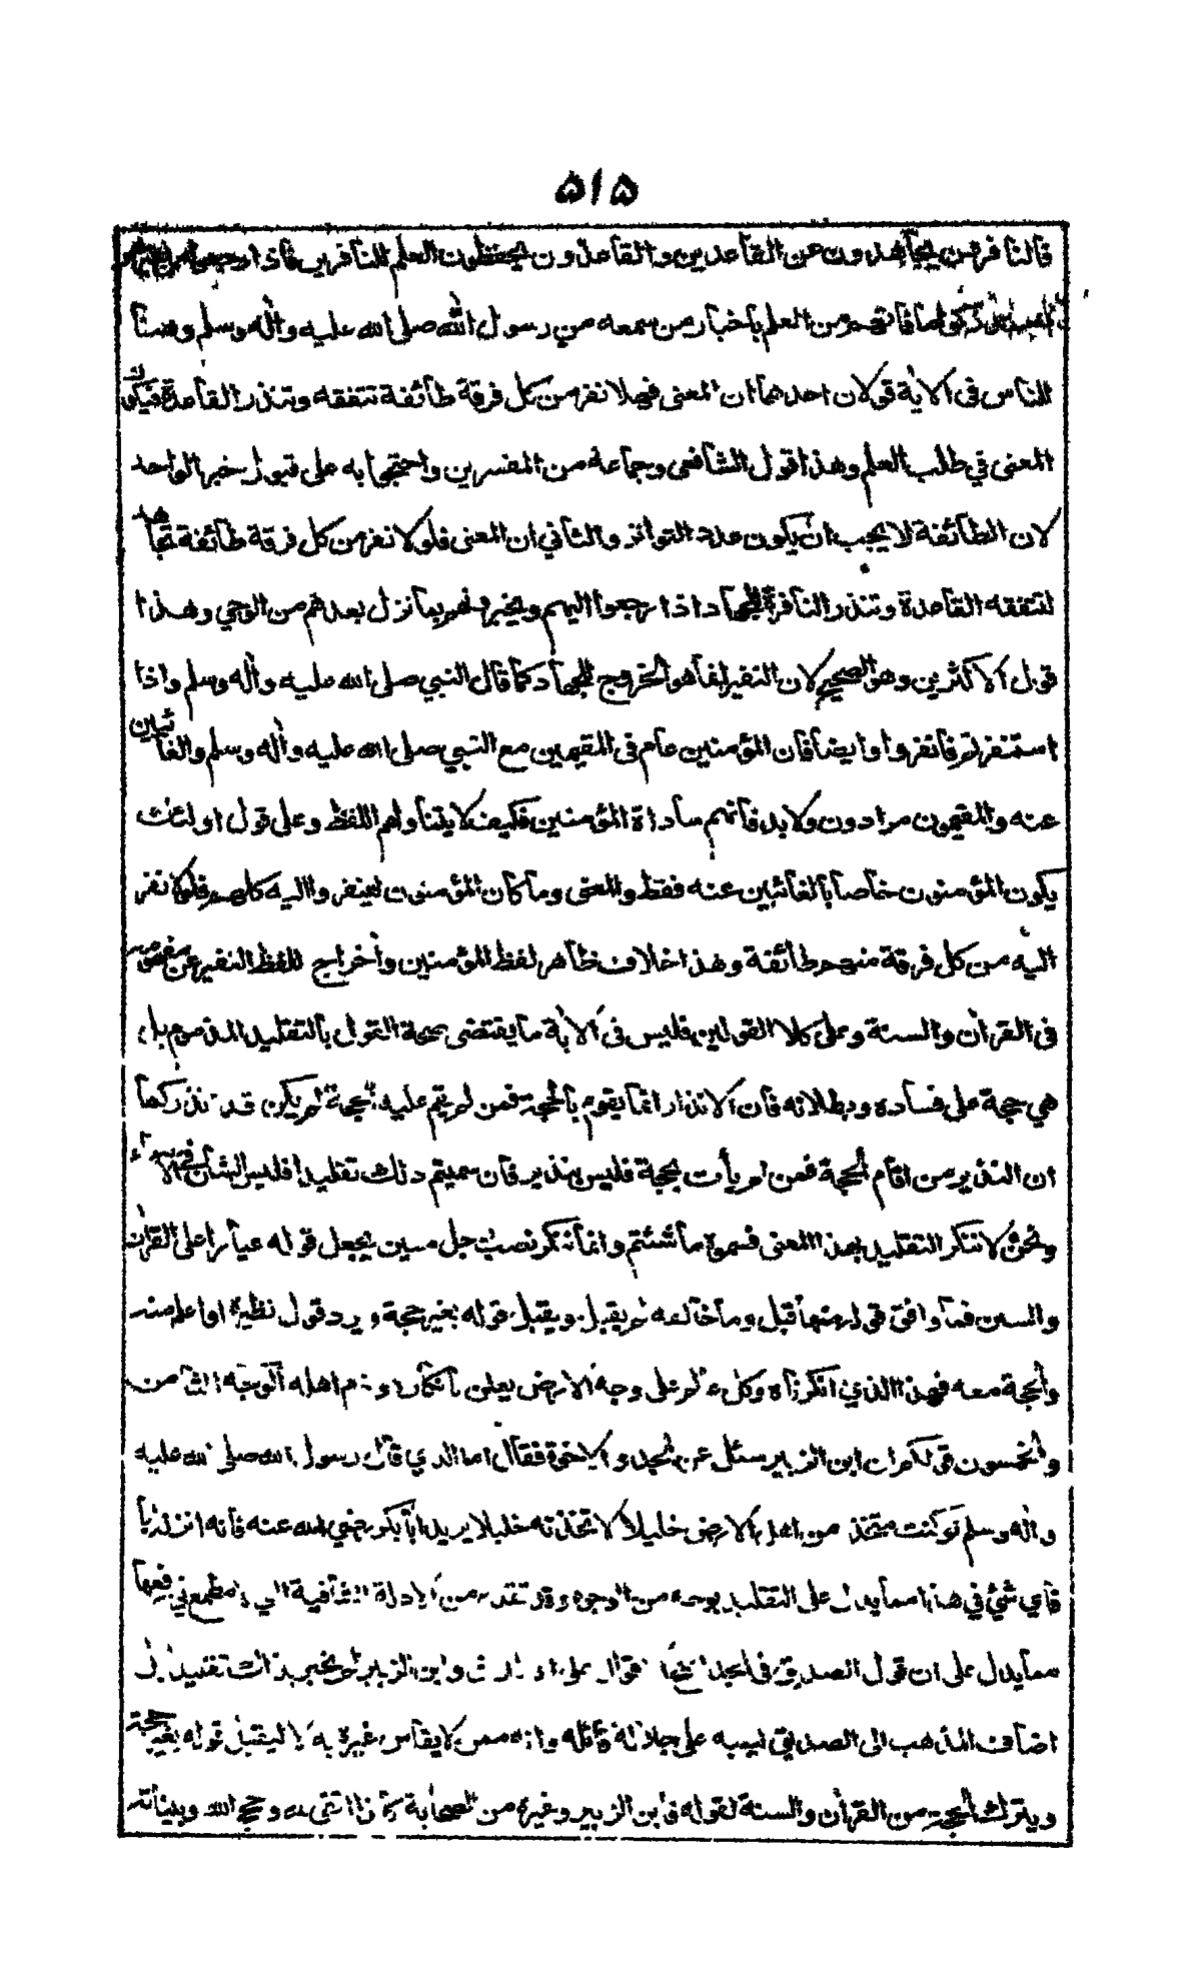 ۵۱۵
فالنافرون يجاهدون عن القاعدين والقاعدون يحفظون العلم للنافرين فاذا رجعوا من
استدركوا ما فاتهم من العلم باخبار من سمعه من رسول الله صلى الله عليه واله وسلم وهنا
للناس فى الاية قولان احدهما ان المعنى فهلا نفر من كل فرقة طائفة تتفقه وتنذر القاعدة فيكون
المعنى في طلب العلم وهذا قول الشافعى وجماعة من المفسرين واحتجوا به على قبول خبر الواحد
لان الطائفة لا يجب ان يكون عدد التواتر والثاني ان المعنى فلولا نفر من كل فرقة طائفة تجاهد
لتتفقه القاعدة وتنذر النافرة للجهاد اذا رجعوا اليهم ويخبرونهم بما نزل بعدهم من الوحي وهذا
قول الاكثرين وهو الصحيح لان النفير انما هو الخروج للجهاد كما قال النبي صلى الله عليه واله وسلم واذا
استنفرتم فانفروا وايضا فان المؤمنين عام فى المقيمين مع النبي صلى الله عليه واله وسلم والغائبين
عنه والمقيمون مرادون ولابد فانهم سادات المؤمنين فكيف لا يتناولهم اللفظ وعلى قول اولئك
يكون المؤمنون خاصا بالغائبين عنه فقط والمعنى وما كان المؤمنون لينفروا اليه كلهم فلولا نفر
اليه من كل فرقة منهم طائفة وهذا خلاف ظاهر لفظ المؤمنين واخراج للفظ النفير عن مفهومه
فى القران والسنة وعلى كلا القولين فليس فى الاية ما يقتضى صحة القول بالتقليد المذموم بل
هي حجة على فساده وبطلانه فان الانذار انما يقوم بالحجة فمن لم يقم عليه الحجة لم يكن قد نذر كما
ان النذير من اقام الحجة فمن لم يأت بحجة فليس بنذير فان سميتم ذلك تقليدا فليس الشان فى الاسماء
ونحن لا ننكر التقليد بهذا المعنى فسموه ما شئتم وانما ننكر نصب رجل معين يجعل قوله عيارا على القران
والسنن فما وافق قوله منها قبل وما خالفه لم يقبل ويقبل قوله بغير حجة ويرد قول نظيره او اعلم منه
والحجة معه فهذا الذي انكرناه وكل عالم على وجه الارض يعلن بانكاره وذم اهله الوجه الثامن
والخمسون قولكم ان ابن الزبير سئل عن الجد والاخوة فقال اما الذي قال رسول الله صلى الله عليه
واله وسلم لو كنت متخذا من اهل الارض خليلا لاتخذته خليلا يريد ابا بكر رضي الله عنه فانه انزله ابا
فاي شئ في هذا مما يدل على التقليد بوجه من الوجوه وقد تقدم من الادلة الشافية التي لا مطمع في دفعها
مما يدل على ان قول الصديق فى الجد اصح الاقوال على الاطلاق وابن الزبير لم يخبر بذلك تقليدا بل
اضاف المذهب الى الصديق لينبه على جلالة قائله وانه ممن لا يقاس غيره به لا ليقبل قوله بغير حجة
ويترك الحجة من القران والسنة لقوله فابن الزبير وغيره من الصحابة كانوا اتقى لله وحجج الله وبيناته